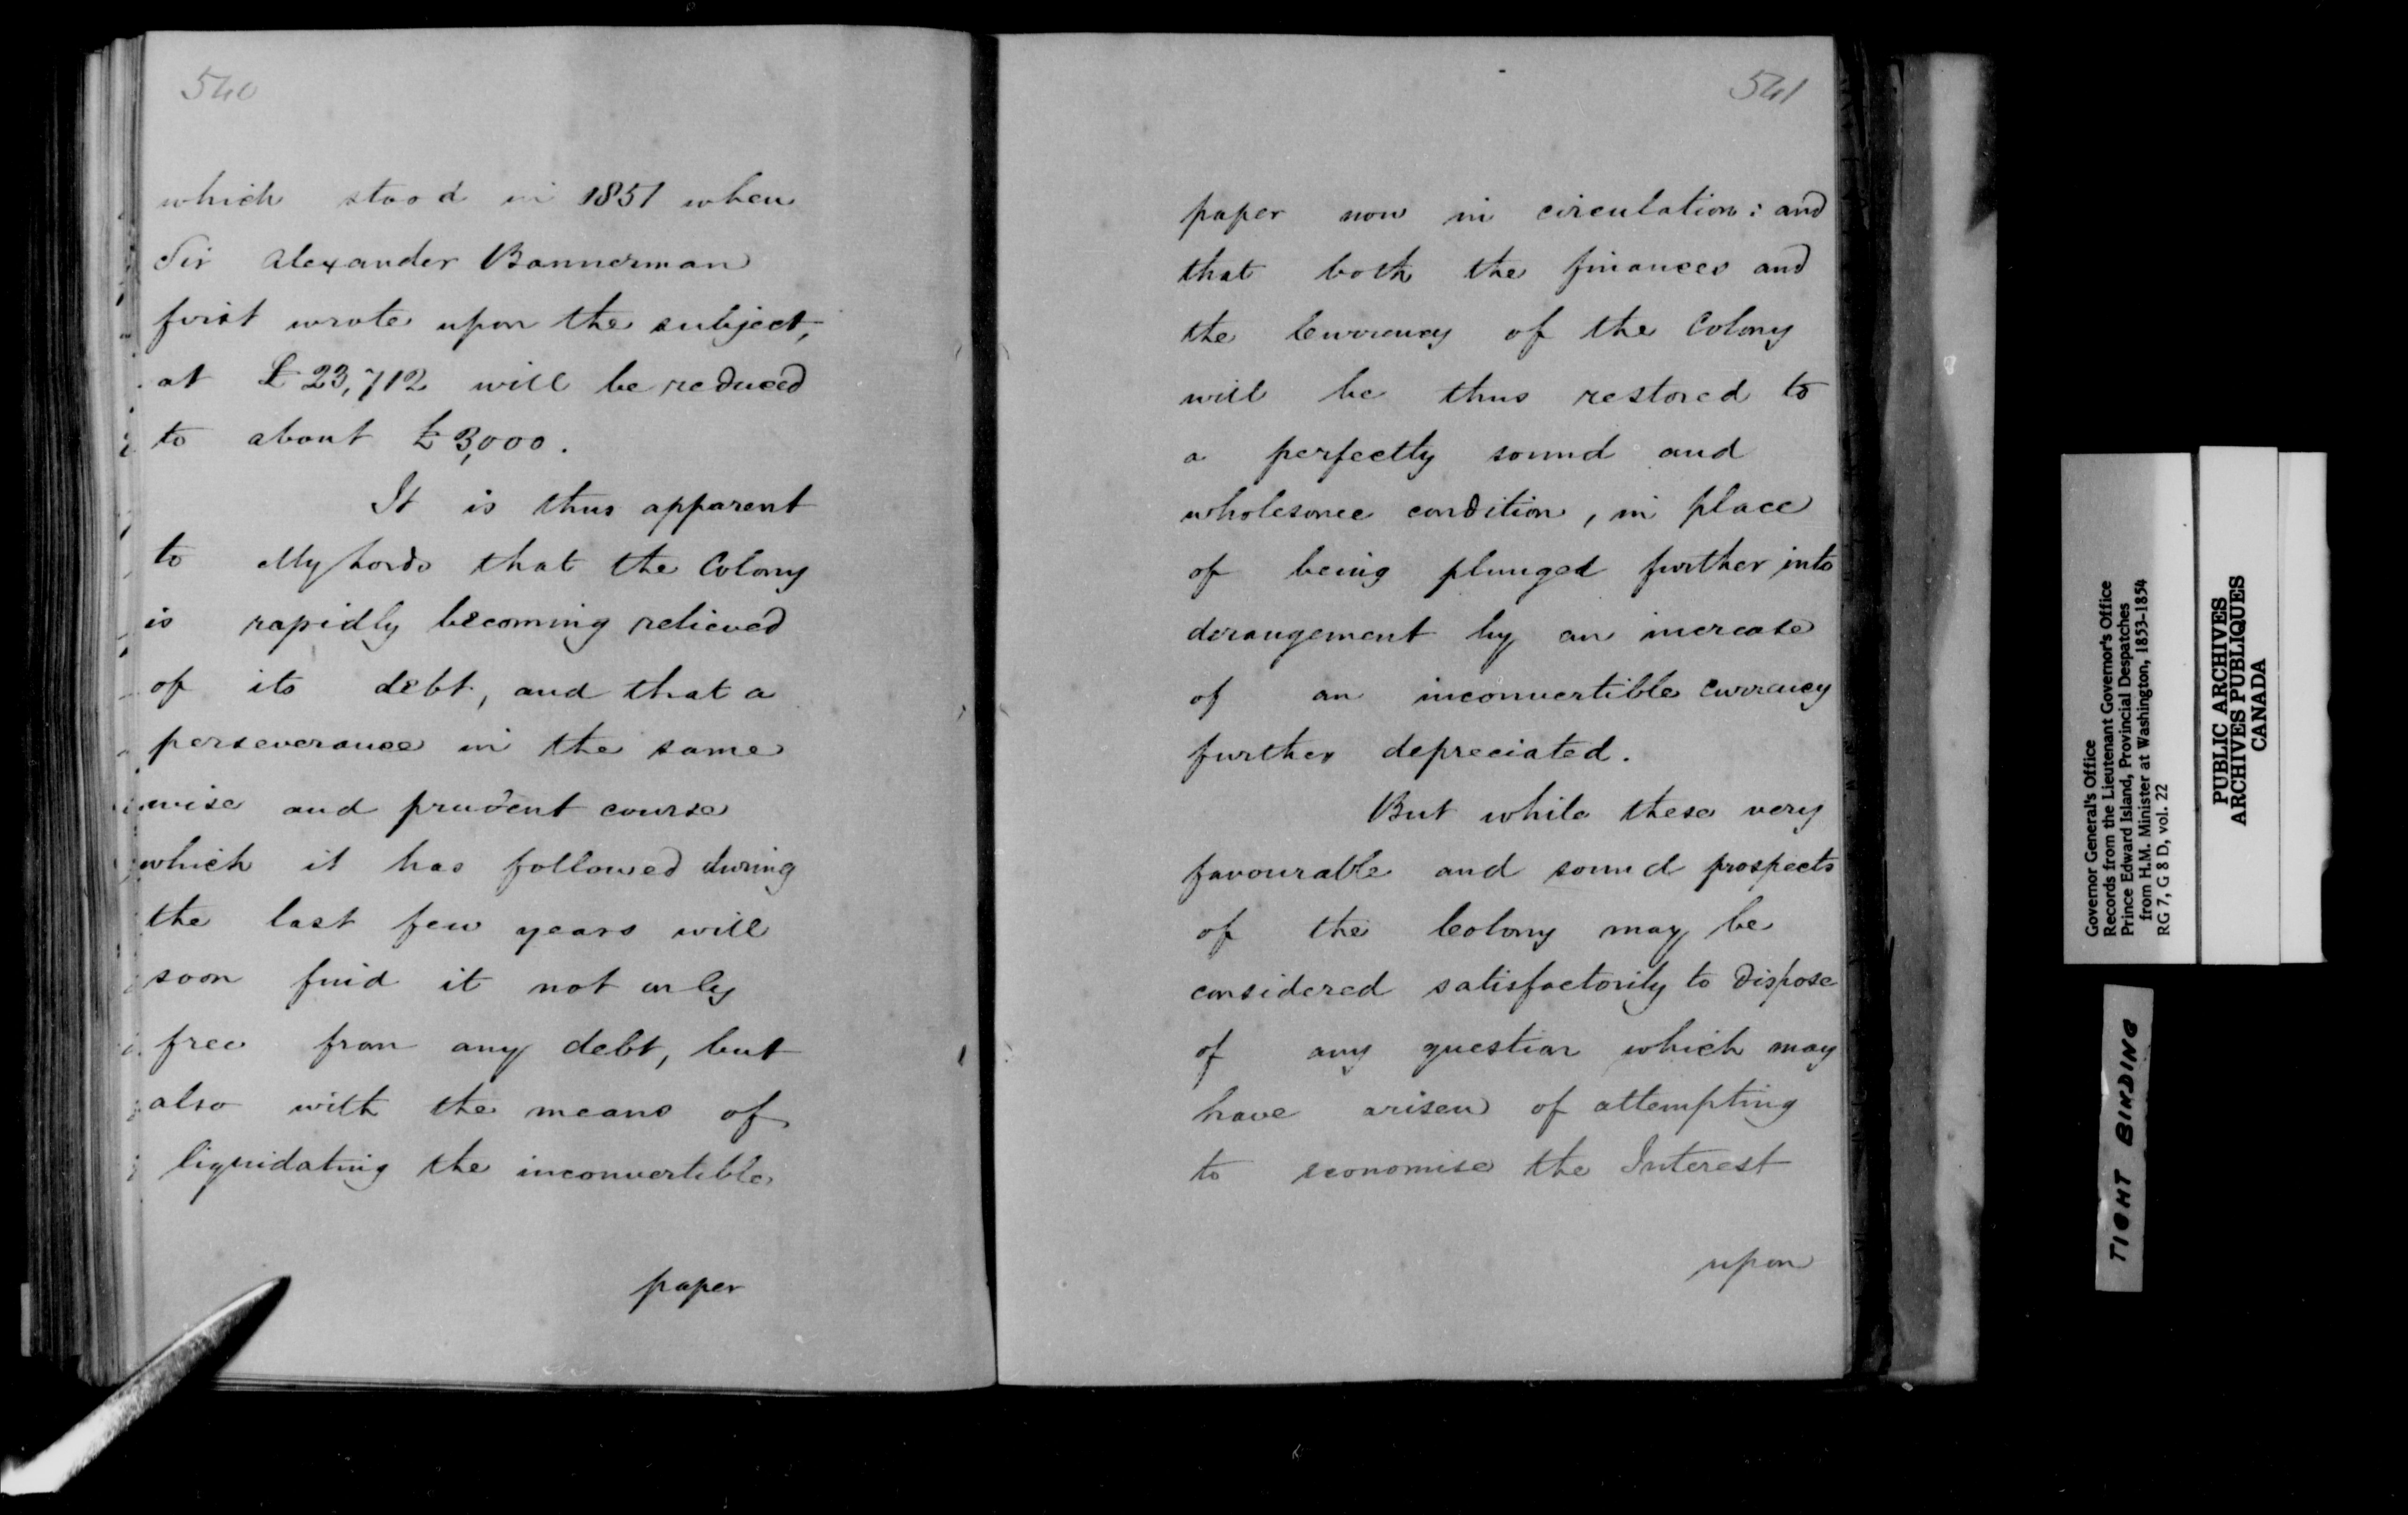 540
which stood in 1851 when
Sir Alexander Bannerman
first wrote upon the subject,
at £23,712 will be reduced
to about £3,000.
It is thus apparent
to My Lords that the Colony
is rapidly becoming relieved
of its debt, and that a
perseverance in the same
wise and prudent course
which it has followed during
the last few years will
soon find it not only
free from any debt, but
also with the means of
liquidating the inconvertible
paper
541
paper now in circulation: and
that both the finances and
the Currency of the Colony
will be thus restored to
a perfectly sound and
wholesome condition, in place
of being plunged further into
derangement by an increase
of an inconvertible currency
further depreciated.
But while these very
favourable and sound prospects
of the Colony may be
considered satisfactorily to dispose
of any question which may
have arisen of attempting
to economise the Interest
upon
Governor General's Office
Records from the Lieutenant Governor's Office
Prince Edward Island, Provincial Despatches
from H.M. Minister at Washington, 1853-1854
RG 7, G 8 D, vol. 22
PUBLIC ARCHIVES
ARCHIVES PUBLIQUES
CANADA
TIGHT BINDING